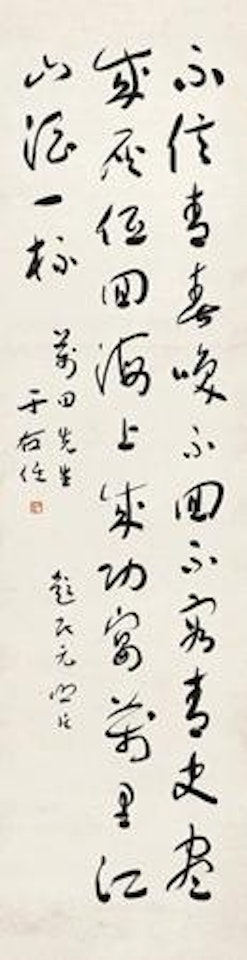 不信青春喚不回不容青史盡
成灰低回海上成功宴萬里江
山酒一杯
萬田先生
于右任